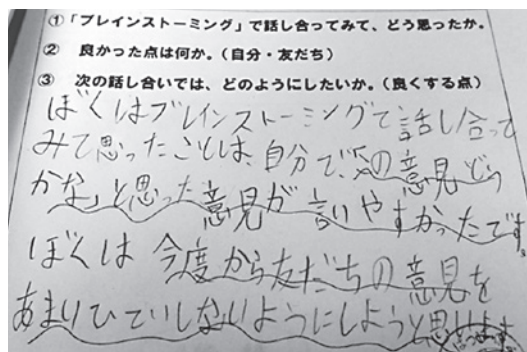 ①「ブレインストーミング」で話し合ってみて、どう思ったか。
② 良かった点は何か。（自分・友だち）
③ 次の話し合いでは、どのようにしたいか。（良くする点）
ぼくはブレインストーミングで話し合って
みて思ったことは、自分で、「この意見どう
かな」と思った意見が言いやすかったです。
ぼくは今度から友だちの意見を
あまりひていしないようにしようと思います